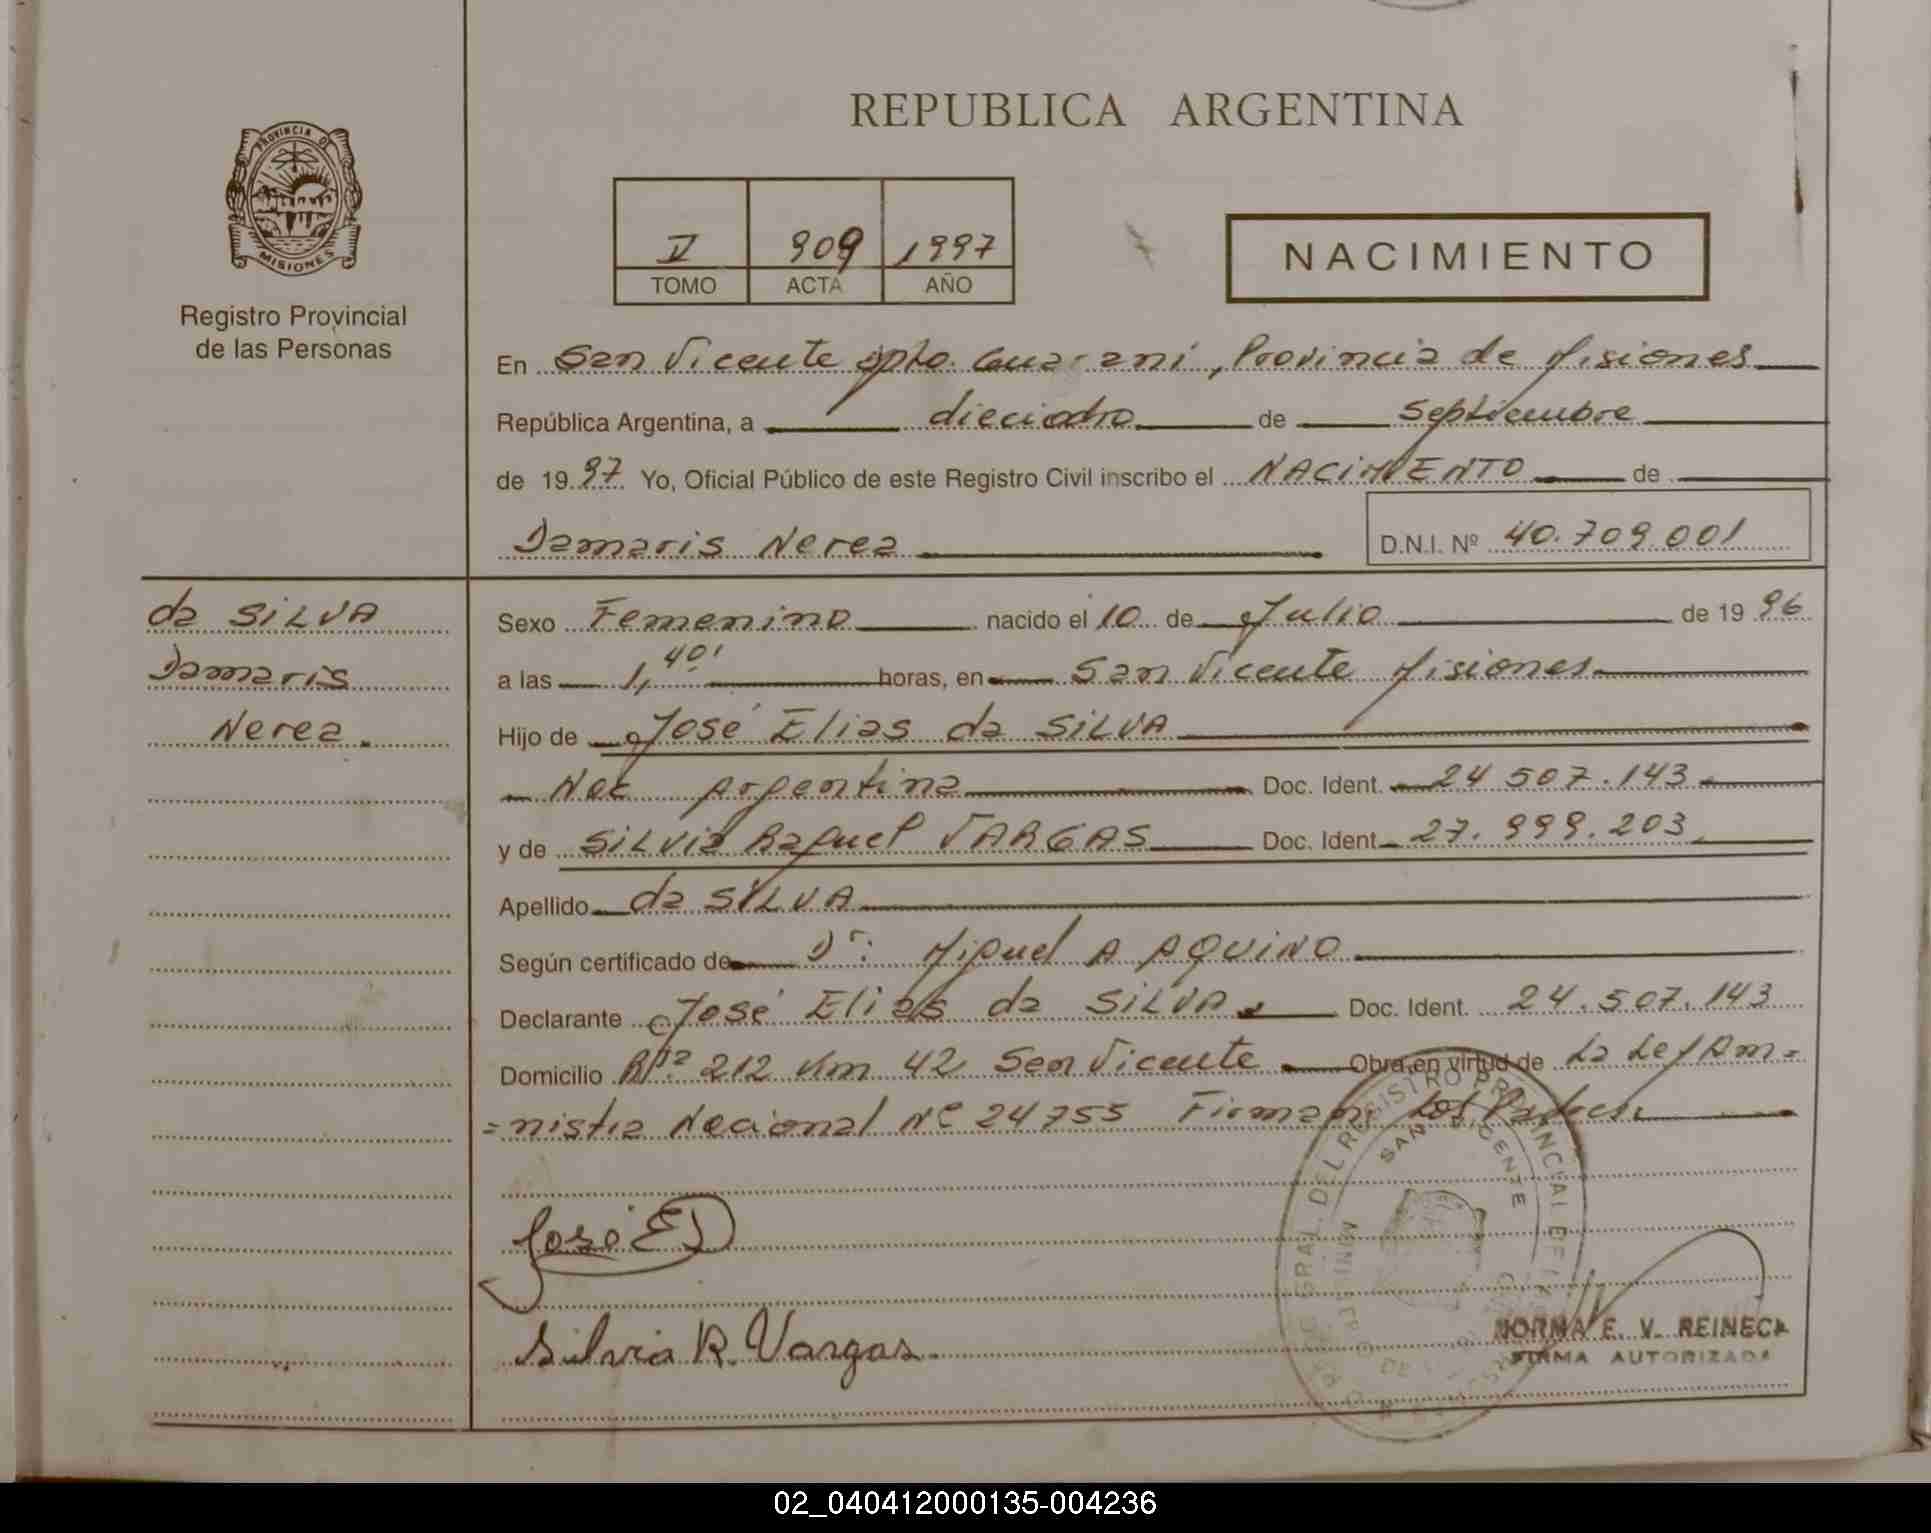 REPUBLICA ARGENTINA
PROVINCIA DE
MISIONES
Registro Provincial
de las Personas
V 909 1997
TOMO ACTA AÑO
NACIMIENTO
En San Vicente Dpto. Guarani, Provincia de Misiones
República Argentina, a dieciocho de Septiembre
de 1997 Yo, Oficial Público de este Registro Civil inscribo el NACIMIENTO de
Damaris Nerea D.N.I. Nº 40.709.001
da SILVA
Damaris
Nerea.
Sexo Femenino nacido el 10 de Julio de 1996
a las 1,40' horas, en San Vicente Misiones
Hijo de José Elias da SILVA
Nac Argentina Doc. Ident. 24 507.143
y de Silvia Raquel VARGAS Doc. Ident. 27.999.203
Apellido da SILVA
Según certificado de Dr: Miguel A AQUINO
Declarante José Elias da SILVA Doc. Ident. 24.507.143
Domicilio 212 Km 42 San Vicente Obra en virtud de La Ley Am=
=nistia Nacional Nº 24755 Firman: Los Padres
José ED
Silvia R. Vargas
GRAL. DEL REGISTRO PROVINCIAL
SAN VICENTE
NORMA E. V. REINECK
FIRMA AUTORIZADA
02_040412000135-004236